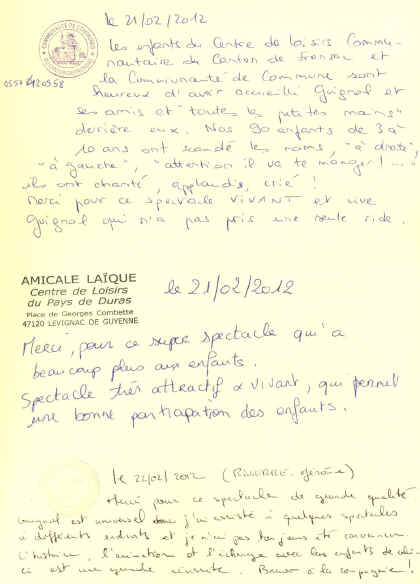 le 21/02/2012
Les enfants du Centre de Loisirs Commu-
nautaire du Canton de Fronsac et
la Communauté de Commune sont
0557
heureux d'avoir accueilli Guignol et
ses amis et "toutes les petites mains"
derrière eux. Nos 90 enfants de 3 à
10 ans ont scandé les noms, "à droite",
"à gauche", "attention il va te manger!..."
ils ont chanté, applaudis, crié!
Merci pour ce spectacle VIVANT et vive
Guignol qui n'a pas pris une seule ride.
AMICALE LAÏQUE
Centre de Loisirs
du Pays de Duras
Place de Georges Combette
47120 LEVIGNAC DE GUYENNE
le 21/02/2012
Merci, pour ce super spectacle qui a
beaucoup plus aux enfants.
Spectacle très attractif & vivant, qui permet
une bonne participation des enfants.
le 22/02/2012
Merci pour ce spectacle de grande qualité
Guignol est universel j'ai assisté à quelques spectacles
à différents endroits et je n'ai pas toujours été convaincu.
L'histoire, l'animation et l'échange avec les enfants de
ci est une grande réussite. Bravo à la compagnie!